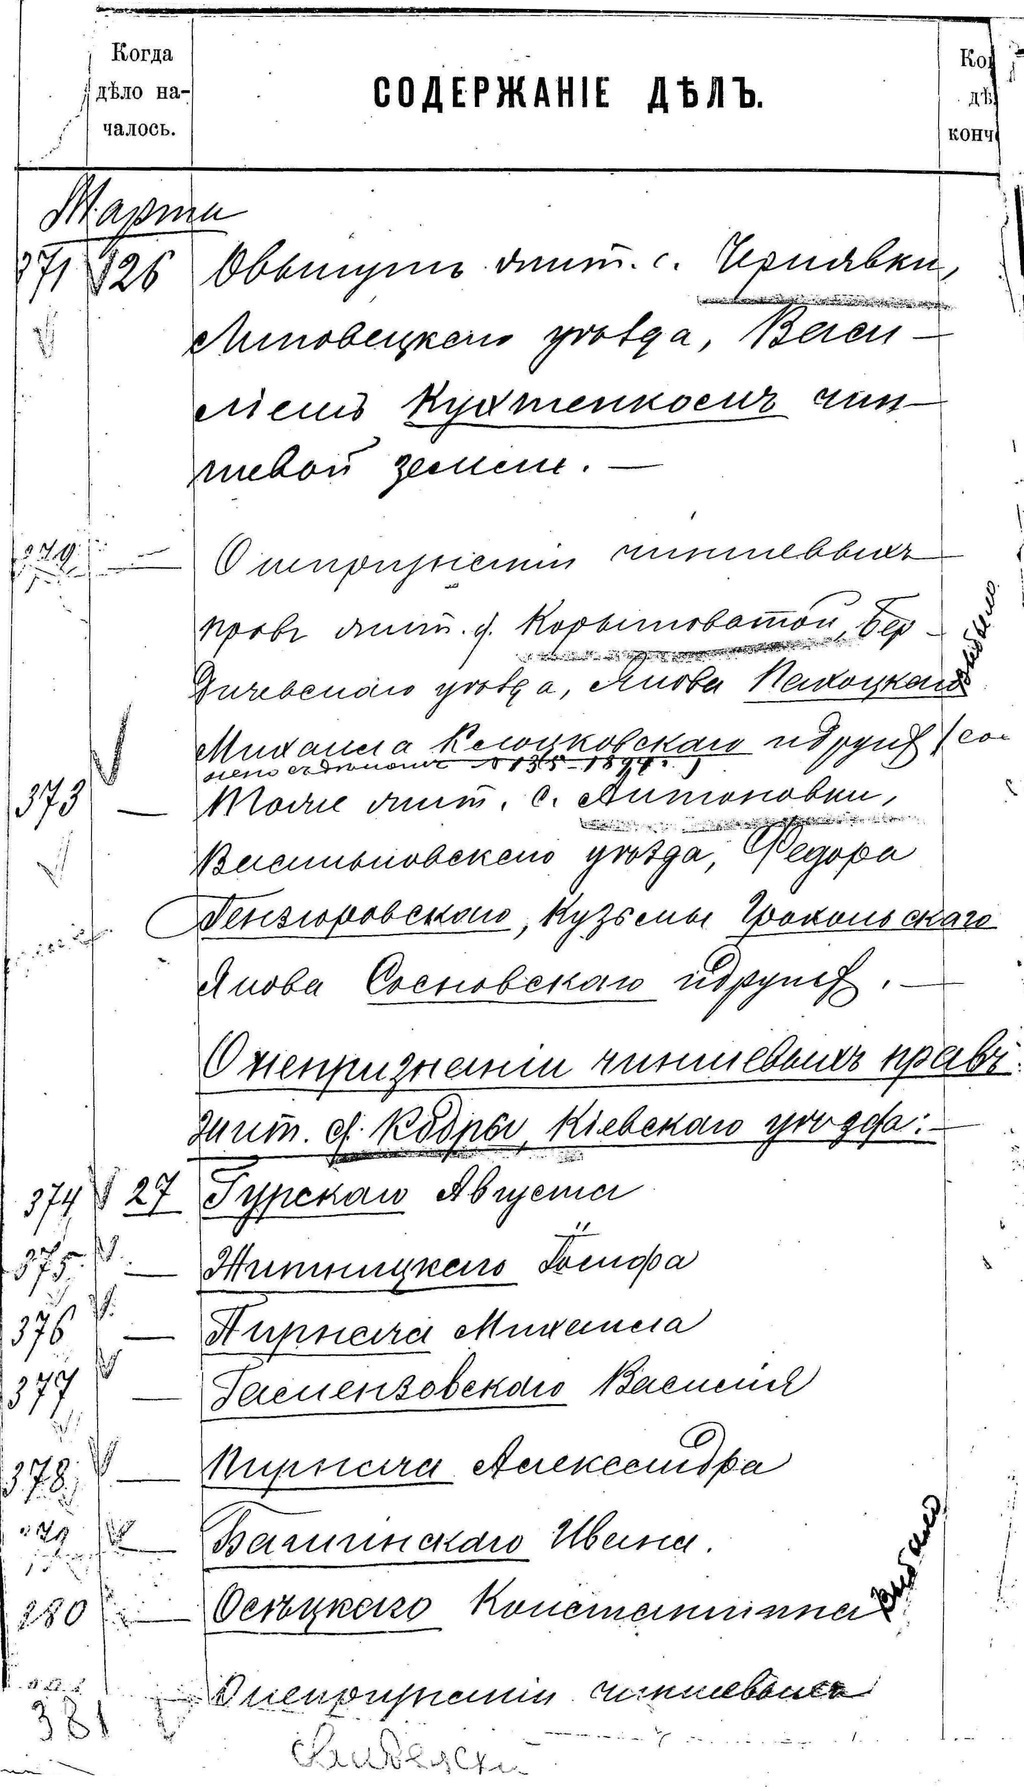 Когда
дѣло на-
чалось.
СОДЕРЖАНІЕ ДѢЛЪ.
Ко
дѣ
конч
Марта
371 26 О выкупѣ жит. с. Чернявки,
Липовецкаго уѣзда, Васи-
ліемъ Кухтенкомъ чин-
шевой земли. —
— О непризнаніи чиншевыхъ
правъ жит. с. Корытоватой, Бер-
дичевскаго уѣзда, Якова
Михаила Клочковскаго и друг. / со-
№ 135-1894 г. )
выбыло
373 — Тоже жит. с. Антоновки,
Васильковскаго уѣзда, Федора
Гензюровскаго, Кузьмы Грохольскаго
Якова Сосновскаго и друг. . —
О непризнаніи чиншевыхъ правъ
жит. с. Кодры, Кіевскаго уѣзда: —
374 27 Гурскаго Августа
375 — Житницкаго Іосифа
376 — Пирнача Михаила
377 — Василія
378 — Пирнача Александра
— Ивана.
280 — Осѣцкаго Константина
выбыло
О непризнаніи чиншевыхъ
381